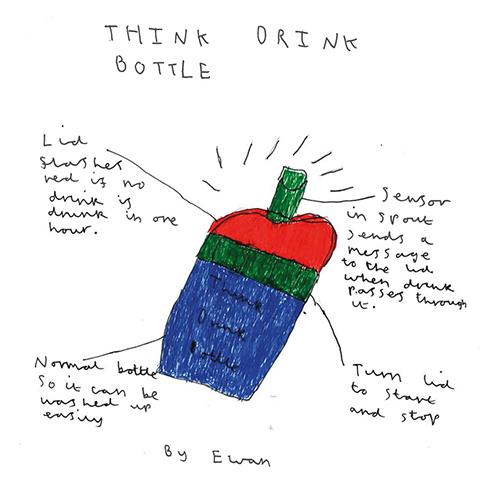 THINK DRINK
BOTTLE
Lid
flashes
red if no
drink is
drunk in one
hour.
Sensor
in spout
sends a
message
to the lid
when drink
passes through
it.
Think
Drink
Bottle
Normal bottle
so it can be
washed up
easily
Turn lid
to start
and stop
By Ewan